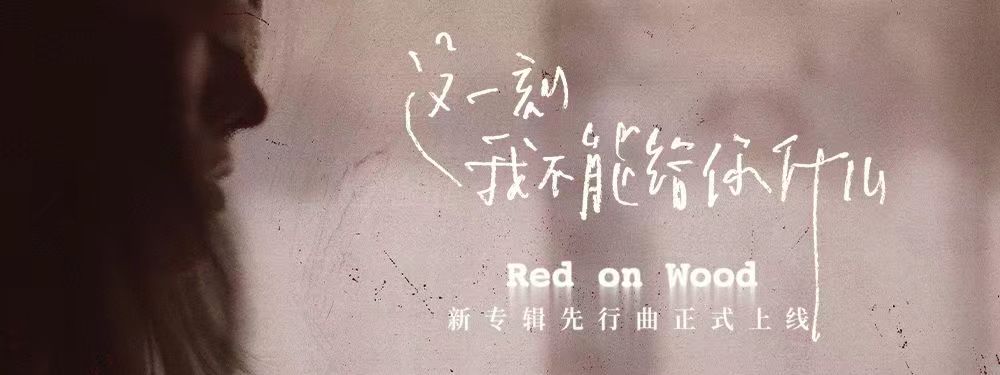 这一刻
我不能给你什么
Red on Wood
新专辑先行曲正式上线